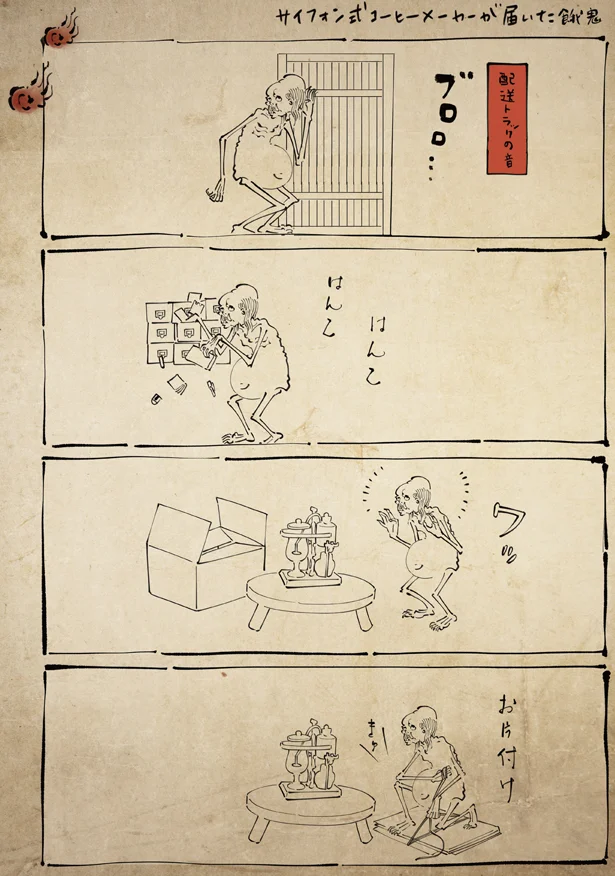 サイフォン式コーヒーメーカーが届いた餓鬼
配送トラックの音
ブロロ…
はんこ
はんこ
ワッ
お片付け
まゅっ